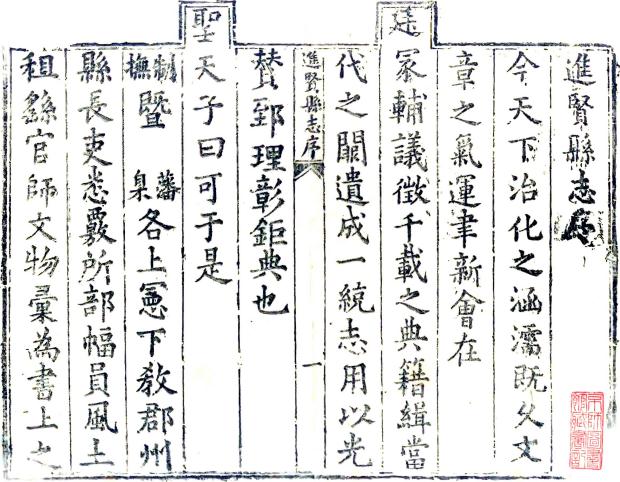 進賢縣志序
今天下治化之涵濡既久文
章之氣運聿新會在
廷
冢輔議徵千載之典籍緝當
代之闕遺成一統志用以光
進賢縣志序
一
贊郅理彰鉅典也
聖
天子曰可于是
制撫暨藩臬各上憲下教郡州
縣長吏悉覈所部幅員風土
租繇官師文物彙為書上之